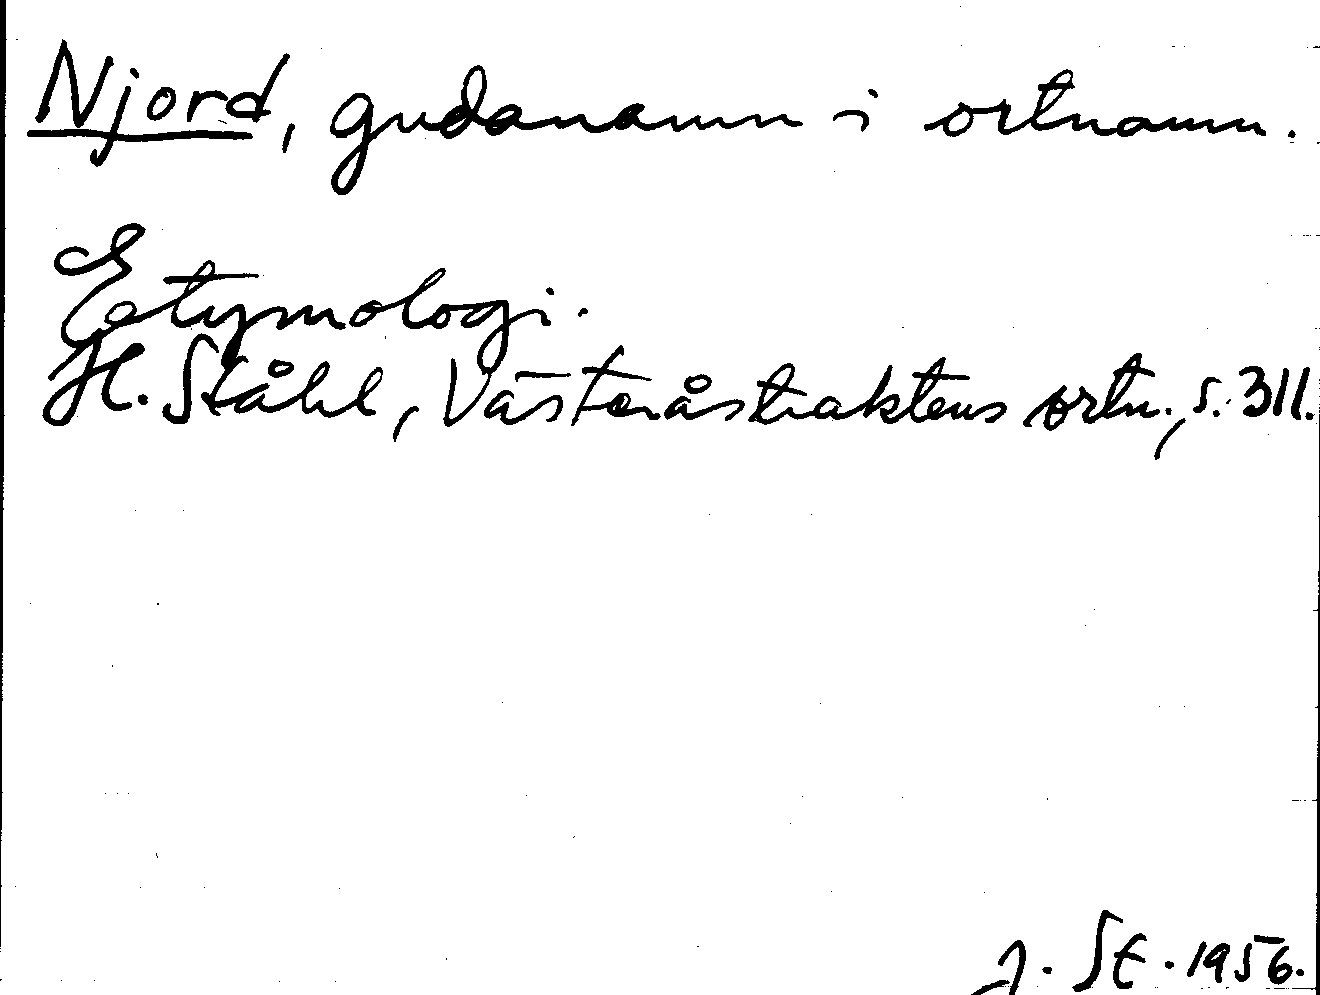 Njord, gudanamn i ortnamn.
Etymologi.
H. Ståhl, Västeråstraktens ortn., s. 311.
J. St. 1956.